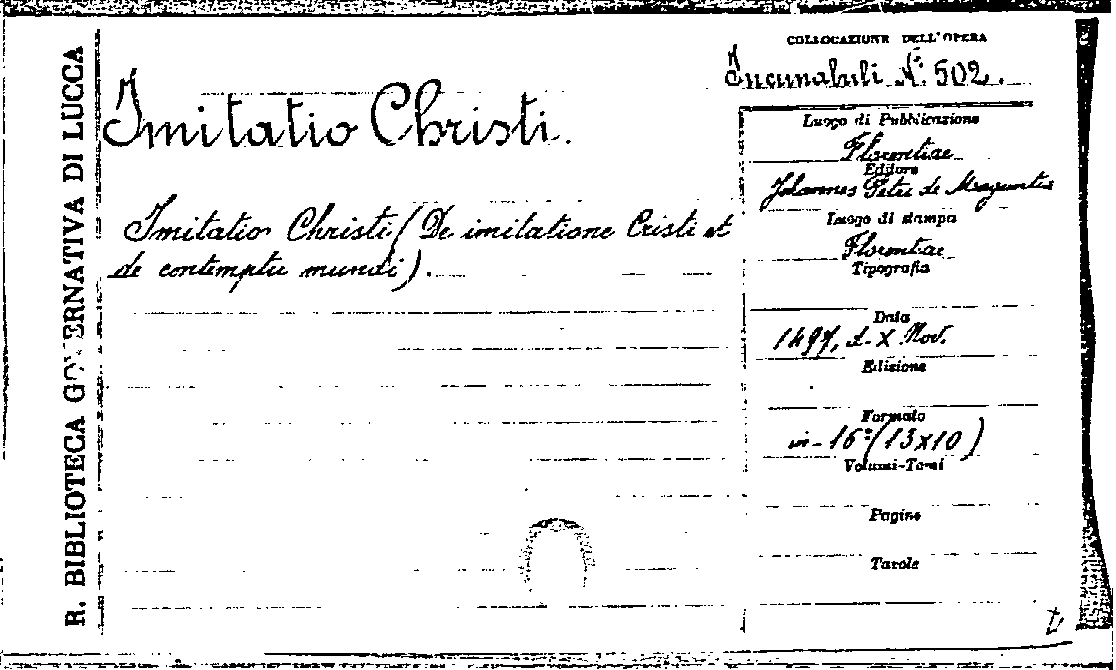 R. BIBLIOTECA GOVERNATIVA DI LUCCA
COLLOCAZIONE DELL'OPERA
Incunabuli N.º 502.
Imitatio Christi.
Imitatio Christi (De imitatione Cristi et
de contemptu mundi).
Luogo di Pubblicazione
Florentiae
Editore
Johannes Petri de Maguntia
Luogo di stampa
Florentiae
Tipografia
Data
1497, d. X Nov.
Edizione
Formato
in-16º (13x10)
Volumi-Tomi
Pagine
Tavole